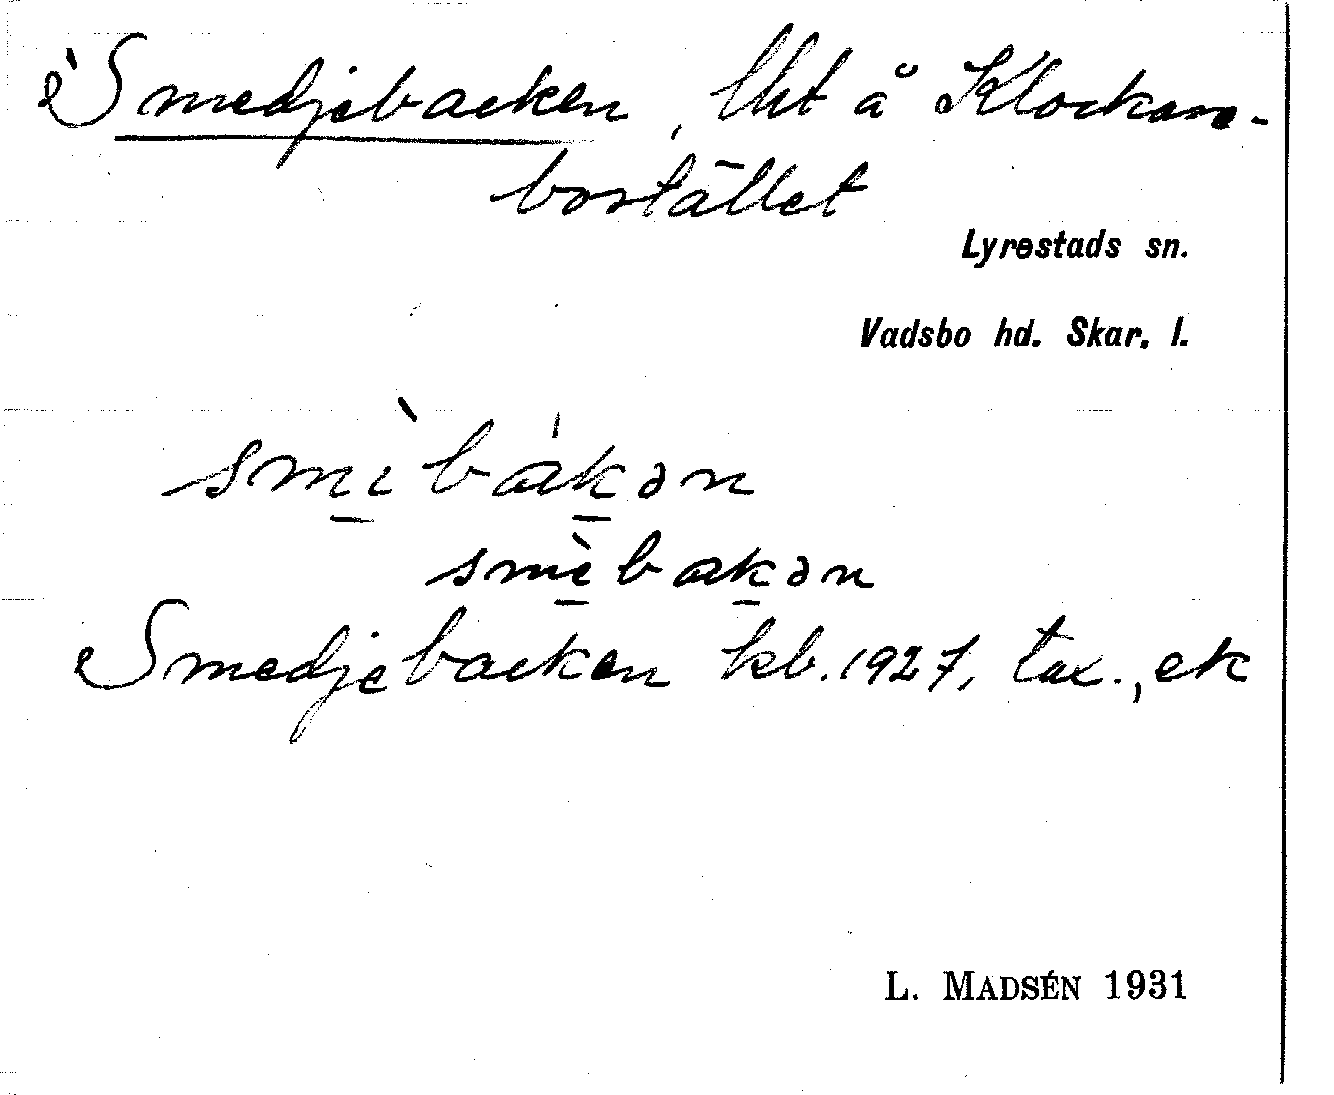 Smedjebacken, lht å Klockare-
bostället
Lyrestads sn.
Vadsbo hd. Skar. l.
smìbákən
smèbakən
Smedjebacken kb. 1927, tax., ek
L. MADSÉN 1931